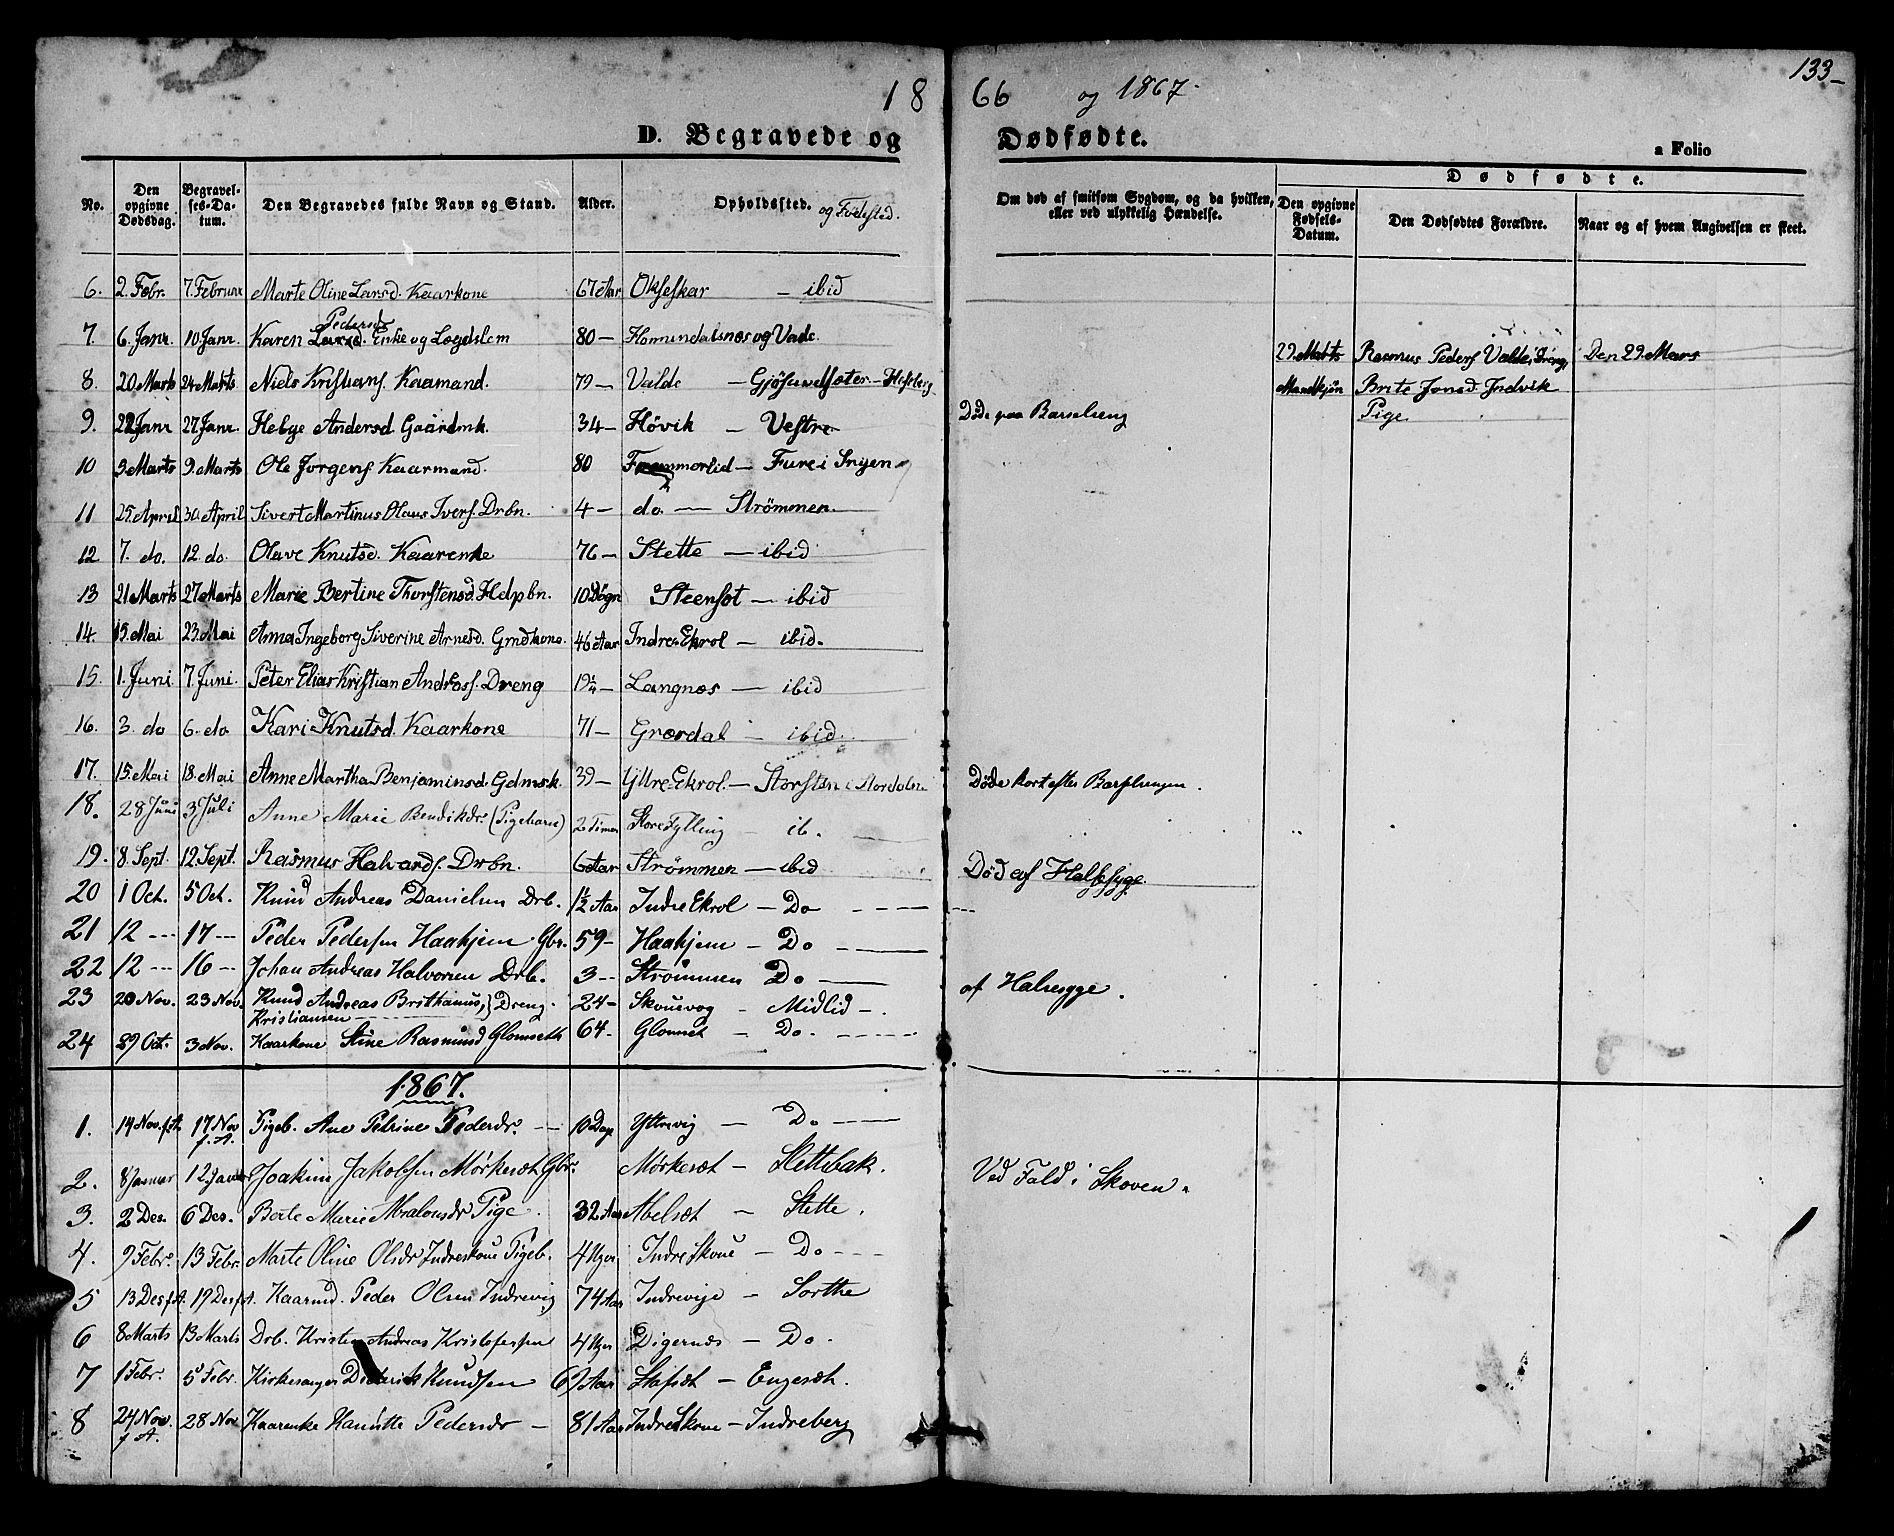 133
18 66 og 1867.
D. Begravede og Dødfødte.
a Folio
No.
Den opgivne Dødsdag.
Begravelses-Datum.
Den Begravedes fulde Navn og Stand.
Alder.
Opholdssted. og Fødested.
Om død af smitsom Sygdom, og da hvilken, eller ved ulykkelig Hændelse.
Dødfødte.
Den opgivne Fødsels-Datum.
Den Dødfødtes Forældre.
Naar og af hvem Angivelsen er skeet.
6. 2. Febr. 7. Februar Marte Oline Larsd. Kaarkone 67 Aar Okseskar — ibid
7. 6. Janr. 10 Janr. Karen Pedersd. Enke og Lægdslem 80 — Hommdalsnæs og Vade
29. Marts Rasmus Peders Valde, Dreng Den 29. Mars
8. 20 Marts 24 Marts Niels Kristians. Kaamand. 79 — Valde — Gjösundsæter —
Mandkjøn Brite Jonsd. Indvik
9. 22 Janr 27. Janr. Helge Andersd Gaardmk. 34 — Hövik — Vestre Døde paa Barselseng
Pige
10 3. Marts 9. Marts Ole Jørgens Kaarmand. 80 Frammerlid — Fure i
11 25. April 30 April Sivert Martinus Olaus Ivers. Drbn. 4 — do — Strömmen.
12 7. do. 12. do. Olave Knutsd. Kaarenke 76 — Stette — ibid
13 21 Marts 27 Marts Marie Bertine Thorstensd. Hdpbn. 10 Dögn Steensæt — ibid
14 15. Mai 23. Mai Anna Ingeborg Siverine Arnesd. Gmdkone. 46 Aar Indre Ekrol — ibid.
15. 1. Juni 7. Juni. Peter Elias Kristian Andreass. Dreng 19¼ — Langnæs — ibid
16. 3. do 6. do Kari Knutsd. Kaarkone 71 — Grærdal — ibid.
17. 15. Mai 18. Mai Anne Martha Benjaminsd. Gdmsk. 39 — Yttre Ekrol. — Storsten i Stordalen Døde kort efter Barselsengen.
18. 28 Juni 3 Juli Anne Marie Bendikdr. (Pigebarn) 2 Timer Store Fylling — ib.
19. 8. Sept. 12. Sept. Rasmus Halvards. Drbn. 6 Aar Strömmen — ibid Død af Halssyge.
20 1 Oct. 5 Oct. Knud Andreas Danielsen Drb. 1½ Aar Indre Ekrol — Do
21 12 --- 17 --- Peder Pedersen Haakjem Gbr. 59 — Haakjem — Do
22 12 --- 16 -- Johan Andreas Halvorsen Drb. 3 -- Strömmen Do — af Halssyge.
23 20 Nov. 23 Nov. Knud Andreas Brithanus, } Dreng. 24 — Skouvog — Midlid —.
Kristiansen
24 29 Oct. 3 Nov. Kaarkone Stine Rasmusd Glomseth 64 — Glomset — Do.
1867.
1. 14 Nov. f. A 17 Nov f. A. Pigeb. Ane Petrine Pedersdr. — 10 Dage Yttrevig — Do
2. 8 Januar 12. Januar Joakim Jakobsen Mørkeset Gbr. Mørkeset — Slettebak. Ved Fald i Skoven.
3. 2 Des. 6 Des. Berte Marie Absalonsdr Pige. 32 Aar Abelset — Stette.
4. 9 Febr. 13 Febr. Marte Oline Olsdr Indreskoue Pigeb. 4 Uger Indre Skoue — Do
5 13 Des f. A. 19 Des f. A. Kaarmd. Peder Olsen Indrevig 74 Aar Indrevige — Sorthe
6 8 Marts 13 Marts Drb. Kristen Andreas Kristofersen 4 Uger Digernes — Do.
7 1 Febr. 5 Febr. Kirkesanger Diderik Knudsen 69 Aar Stafset — Engeset.
8 24 Nov. f A. 28 Nov Kaarenke Hanutte Pedersdr — 81 Aar Indre Skoue — Indreberg